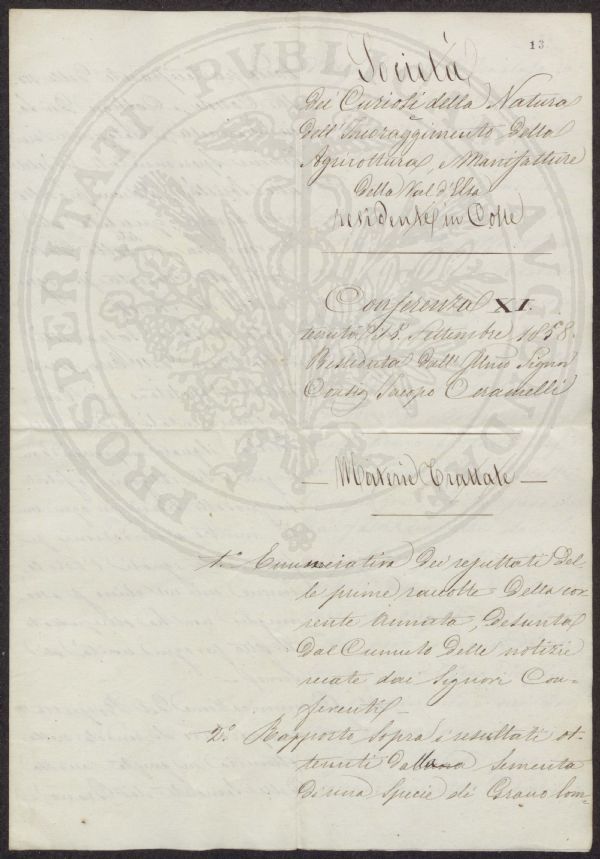 13
Società
dei Curiosi della Natura
dell'Incoraggimento della
Agricoltura, Manifatture
della Val d'Elsa
residente in Colle
Conferenza XI.
tenuta 15. Settembre 1858.
Presieduta dall'Illmo Signor
Jacopo Ceramelli
— Materie Trattate —
1.° Enumerativa dei resultati del-
le prime raccolte della cor-
rente annata, desunta
dal Cumulo delle notizie
recate dai Signori Con-
ferenti —
2.° Rapporto sopra i resultati ot-
tenuti dalla sementa
di una specie di Grano lom-
PROSPERITATI PUBLICAE AUGENDAE